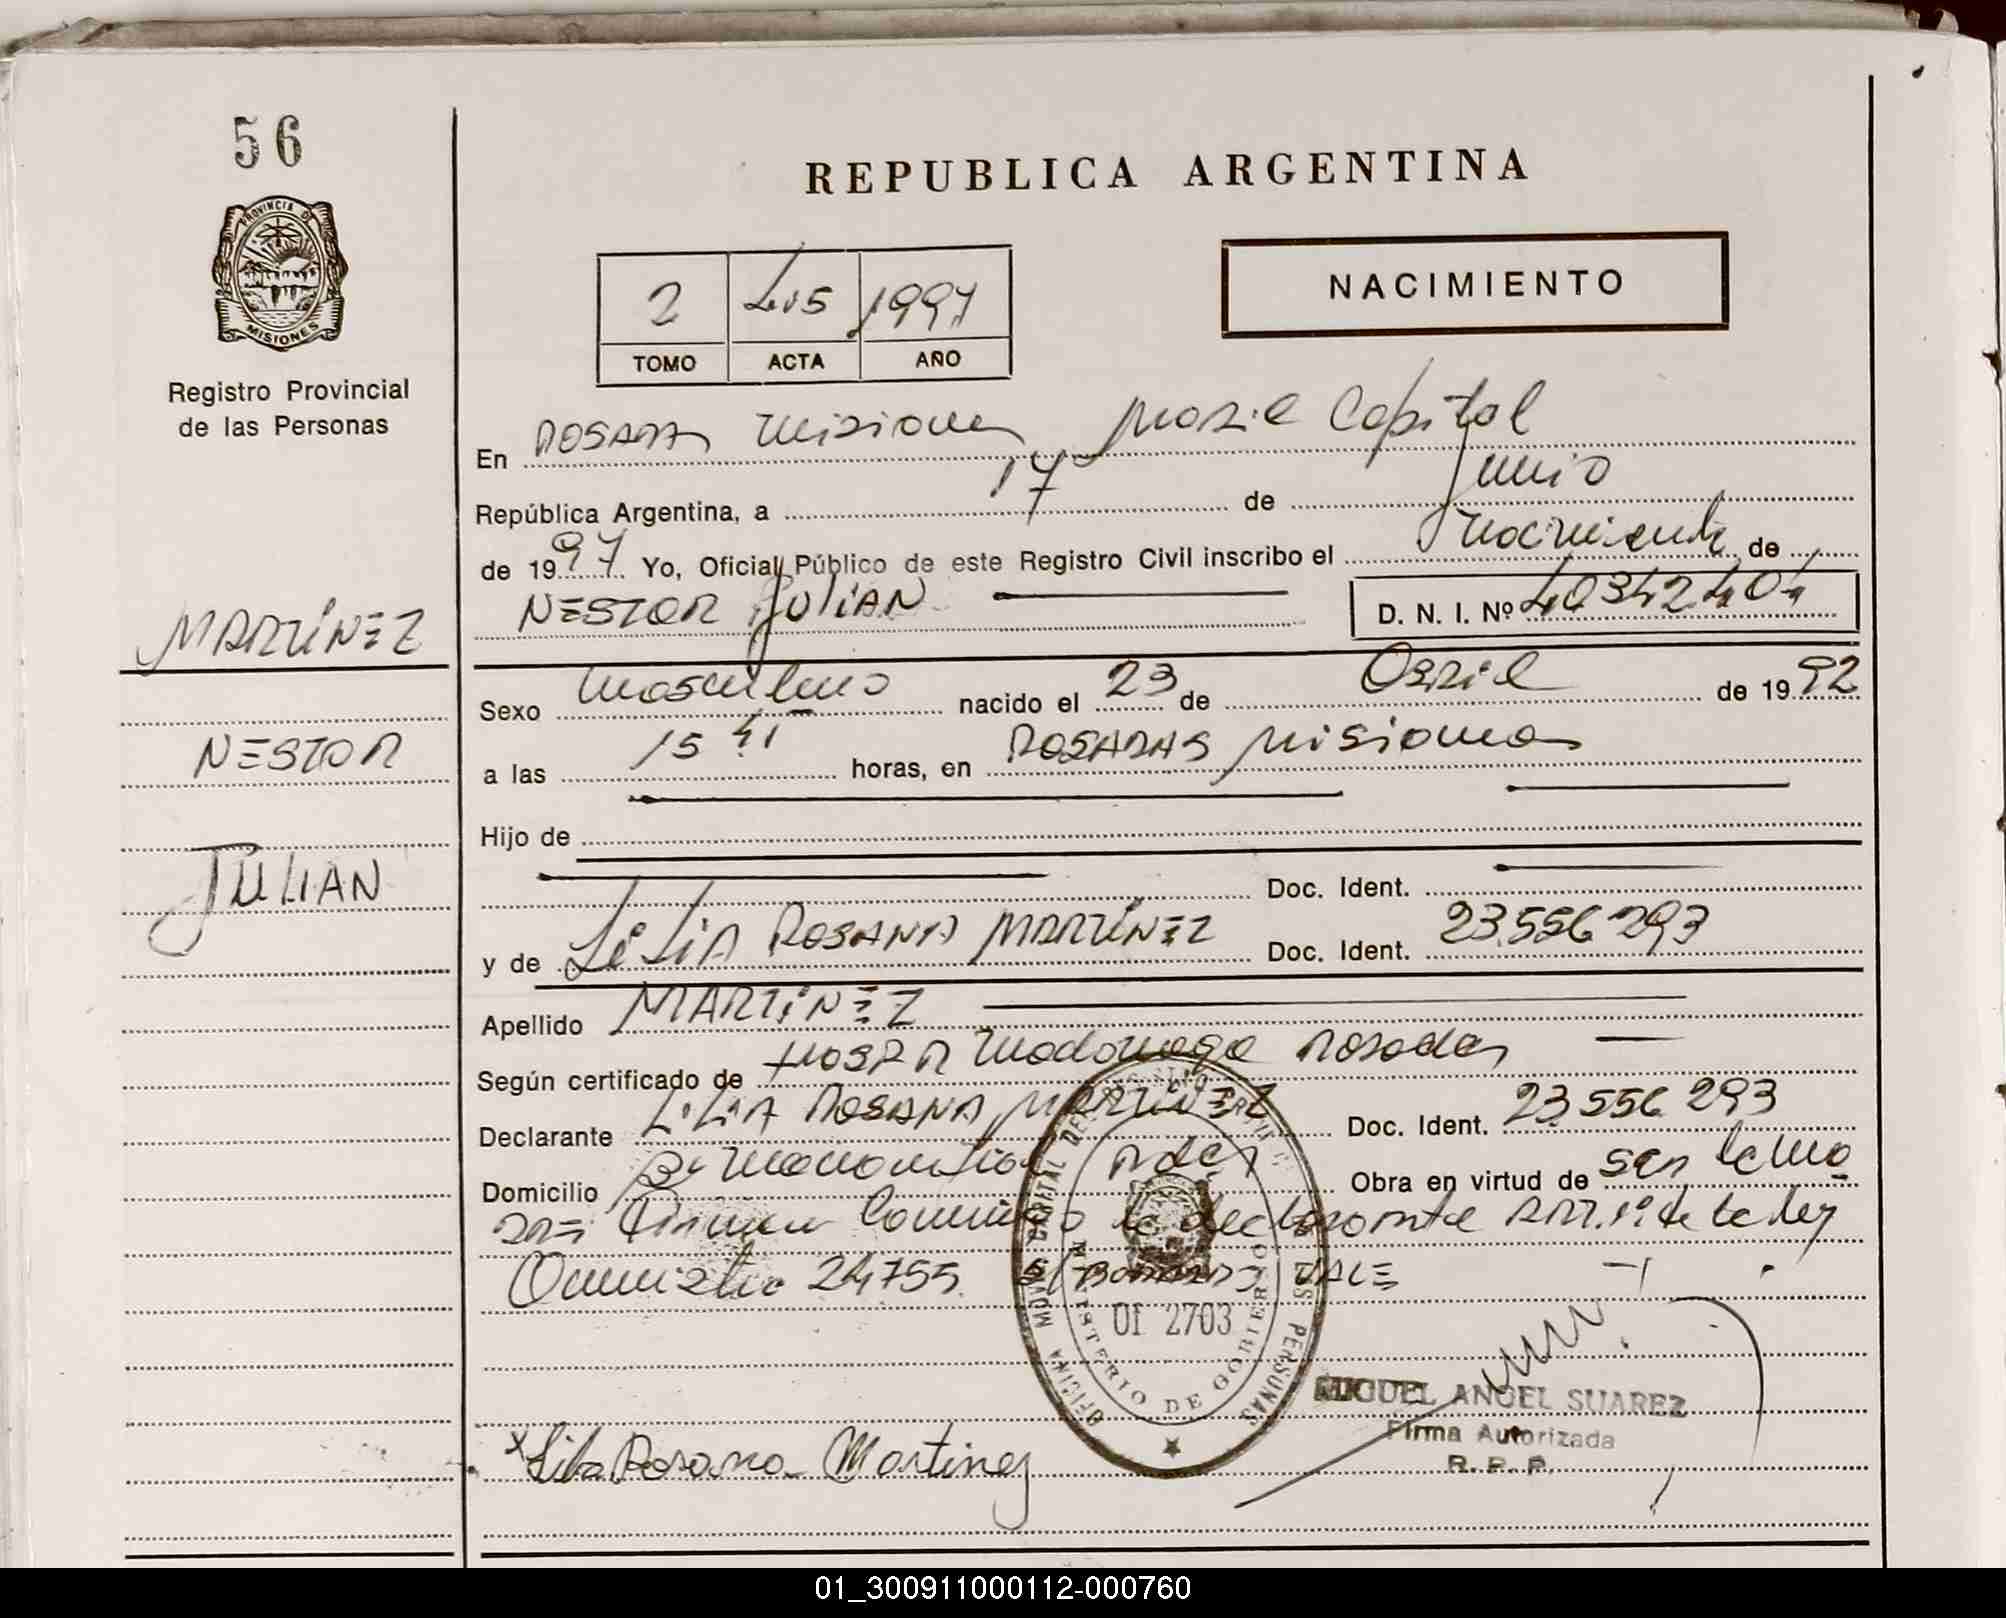 56
PROVINCIA DE
MISIONES
Registro Provincial
de las Personas
REPUBLICA ARGENTINA
NACIMIENTO
2 415 1997
TOMO ACTA AÑO
En POSADAS Misiones Móvil Capital
República Argentina, a 17 de Junio
de 1997 Yo, Oficial Público de este Registro Civil inscribo el Nacimiento de
NESTOR JULIAN D. N. I. Nº 40342404
MARTÍNEZ
NESTOR
JULIAN
Sexo Masculino nacido el 23 de Abril de 1992
a las 15 41 horas, en POSADAS Misiones
Hijo de
Doc. Ident.
y de LILIA ROSANA MARTÍNEZ Doc. Ident. 23.556.293
Apellido MARTÍNEZ
Según certificado de Hosp R Madariaga Posadas
Declarante LILIA ROSANA MARTÍNEZ Doc. Ident. 23.556.293
Domicilio Obra en virtud de ser la ma
dre Firman la declarante Art. de la ley
Amnistia 24755. S/ BORRADO VALE
OFICINA MOVIL CAPITAL DEL REGISTRO PROV. DE LAS PERSONAS
MINISTERIO DE GOBIERNO
01 2703
MIGUEL ANGEL SUAREZ
Firma Autorizada
R. P. P.
x Lilia Rosana Martinez
01_300911000112-000760